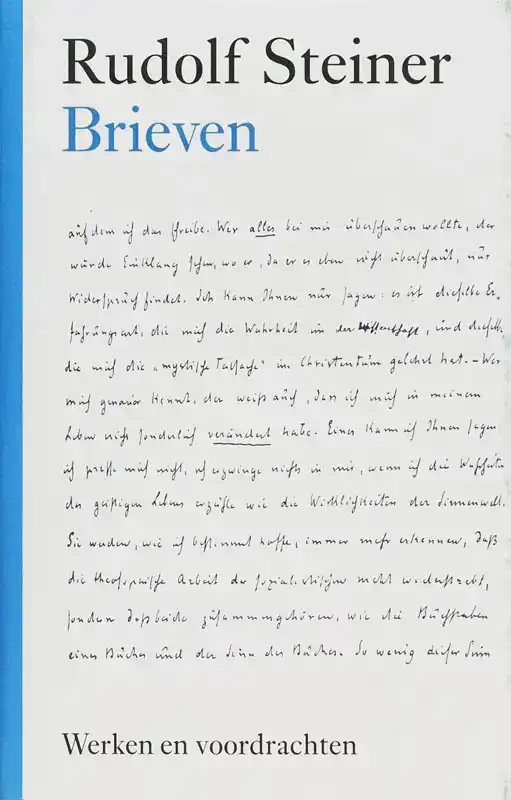 Rudolf Steiner
Brieven
auf dem ich das schreibe. Wer alles bei mir überschauen wollte, der
würde Einklang sehen, wo er, da er es eben nicht überschaut, nur
Widerspruch findet. Ich kann Ihnen nur sagen: es ist dieselbe Er-
fahrungsart, die mich die Wahrheit in der Wissenschaft, und dieselbe,
die mich die „mystische Tatsache“ im Christentum gelehrt hat. – Wer
mich genauer kennt, der weiß auch, dass ich mich in meinem
Leben nicht sonderlich verändert habe. Eines kann ich Ihnen sagen
ich presse mich nicht, ich erzwinge nichts in mir, wenn ich die Wahrheiten
des geistigen Lebens erzähle wie die Wirklichkeiten der Sinnenwelt.
Sie werden, wie ich bestimmt hoffe, immer mehr erkennen, daß
die theosophische Arbeit der sozialistischen nicht widerstrebt,
sondern daß beide zusammengehören, wie die Buchstaben
eines Buches und der Sinn des Buches. So wenig dieser Sinn
Werken en voordrachten